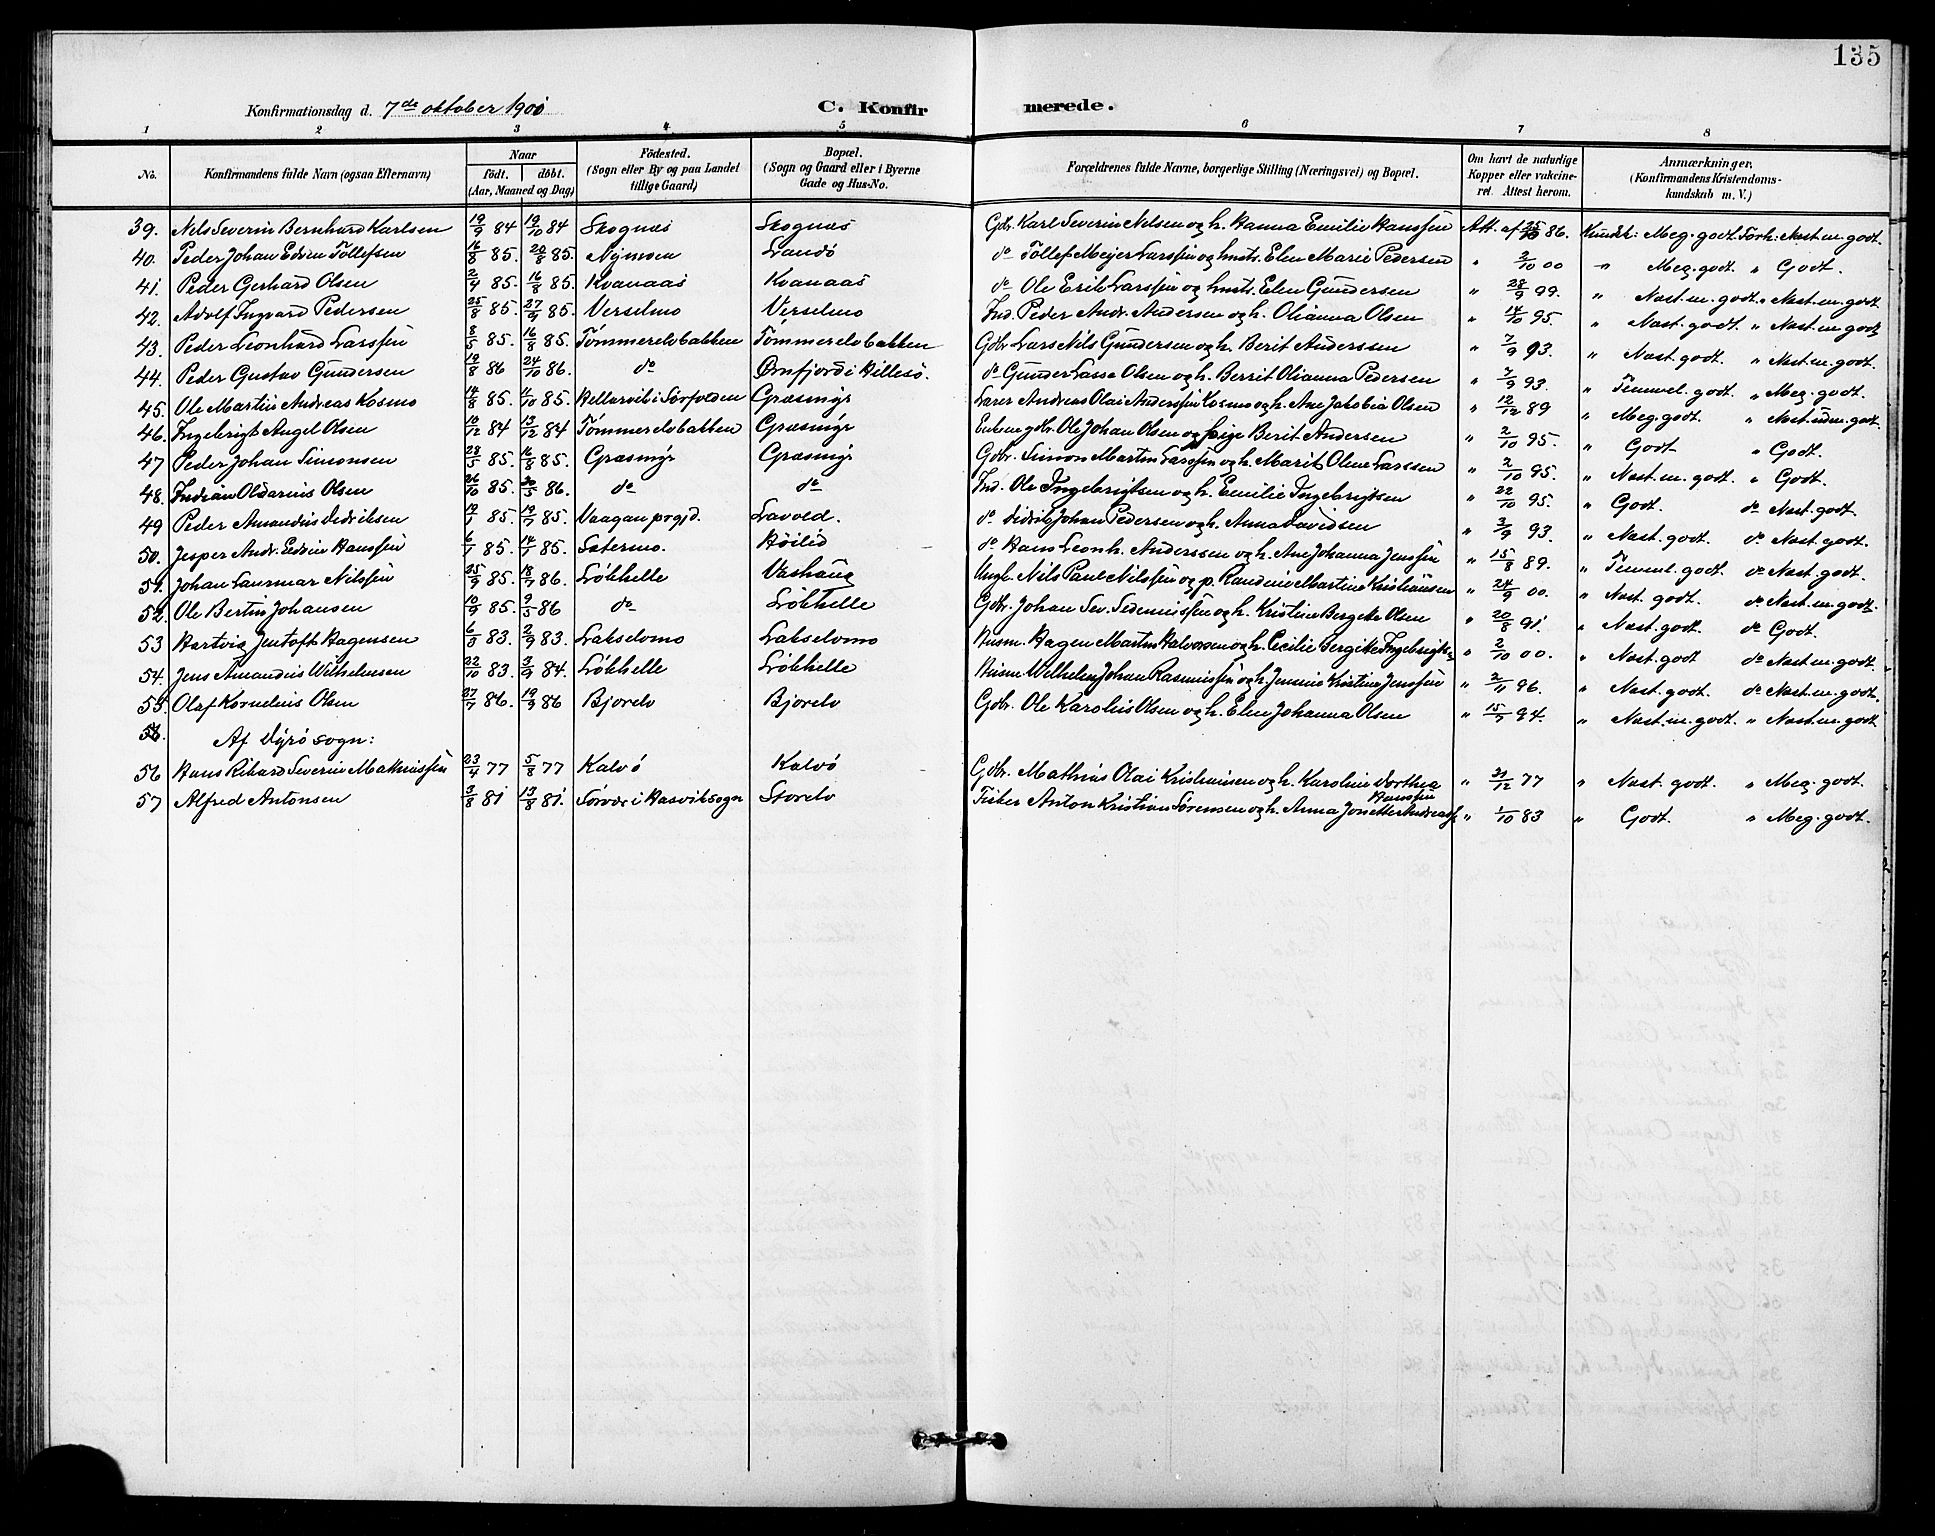 135
Konfirmationsdag d. 7de oktober 1900 C. Konfirmerede.
1 2 3 4 5 6 7 8
No. Konfirmandens fulde Navn (ogsaa Efternavn) Naar födt. döbt. (Aar, Maaned og Dag) Födested. (Sogn eller By og paa Landet tillige Gaard) Bopæl. (Sogn og Gaard eller i Byerne Gade og Hus-No. Forældrenes fulde Navne, borgerlige Stilling (Næringsvei) og Bopæl. Om havt de naturlige Kopper eller vakcineret. Attest herom. Anmærkninger. (Konfirmandens Kristendomskundskab m. V.)
39. Nels Severin Bernhard Karlsen 19/9 84 19/10 84 Skognæs Skognæs Gbr. Karl Severin Nilsen og h. Hanna Emilie Hanssen Att. af 86. Kundsk: Meg. godt. Forh: Nost. m. godt.
40. Peder Johan Edvin Töllefsen 85. 20/8 85. Nymoen Landö do Töllef Meyer Larssen og hustr. Elen Marie Pedersen " 2/10 00 " Meg. godt " Godt.
41. Peder Gerhard Olsen 85. 16/8 85. Kvanaas Kvanaas do Ole Erik Larssen og hustr. Elen Gundersen " 28/9 99. " Nost. m. godt " Nost. m. godt
42. Adolf Ingvard Pedersen 25/8 85. 27/9 85. Verselmo Verselmo Ind. Peder Andr. Andersen og h. Olianna Olsen " 14/10 95. " Nost. godt " Nost. m. godt
43. Peder Leonhard Larssen 8/5 85. 16/8 85. Tömmerelvbakken Tömmerelvbakken Gbr. Lars Nils Gundersen og h. Berit Anderssen " 7/9 93. " Nost. godt " Nost. m. godt.
44. Peder Gustav Gundersen 19/8 86 24/10 86. do Ørnfjord i Hillesö. do Gunder Lasse Olsen og h. Berrit Olianna Pedersen " 7/9 93. " Temmel. godt " Meg. godt.
45. Ole Martin Andreas Kosmo 14/8 85. 85. Hellarvik i Sörfolden Græsmyr Lærer Andreas Olai Anderssen Kosmo og h. Ane Jakobia Olsen " 12/12 89 " Meg. godt. " Nost. uden. godt.
46. Ingebrigt Angel Olsen 10/12 84 13/12 84 Tömmerelvbakken Græsmyr Enkem. gbr. Ole Johan Olsen og Berit Andersen " 2/10 95. " Godt " Godt.
47 Peder Johan Simonsen 28/5 85. 16/8 85. Græsmyr Græsmyr Gbr. Simon Martin Larssen og h. Marit Oline Larssen " 2/10 95. " Nost. m. godt " Godt.
48. Indian Oldarius Olsen 26/10 85. 86. do do Ind. Ole Ingebrigtsen og h. Emilie Ingebrigtsen " 22/10 95. " Godt. do Nost. godt.
49 Peder Amandus Didriksen 19/1 85. 19/7 85. Vaagan prgjd. Lavold. do Didrik Johan Pedersen og h. Anna Davidsen " 3/9 93. " Nost. godt do Nost. godt.
50. Jesper Andr. Edvin Hanssen 6/1 85. 14/5 85. Sætermo. Höilid do Hans Leonh. Anderssen og h. Ane Johanna Jenssen " 15/8 89. " Temml. godt. do Nost. godt.
51. Johan Laurmar Nilssen 25/9 85. 18/7 86. Lökhelle Vashaug Ungk. Nils Paul Nilssen og p. Randine Martine Kristiansen " 24/9 00. " Nost. godt. do Nost. m. godt.
52. Ole Bertin Johansen 10/9 85. 9/5 86 do Lökhelle Gbr. Johan Sev. og h. Kristine Bergitte Olsen " 20/8 91. " Nost. godt. do Godt.
53 Hartvig Jentoft Hagensen 6/8 83. 2/9 83. Lakselvmo Lakselvmo Husm. Hagen Martin Halvorsen og h. Cecilie Bergitte Ingebrigts. " 2/10 00. " Nost. godt do Nost. m. godt.
54. Jens Amandus Wilhelmsen 22/10 83. 3/9 84. Lökhelle Lökhelle Husm. Wilhelm Johan Rasmussen og h. Jensine Kristine Jenssen " 2/11 96. " Nost. godt. do Nost. m. godt.
55. Olaf Kornelius Olsen 27/7 86. 19/9 86 Bjorelv Bjorelv Gbr. Ole Karolius Olsen og h. Elen Johanna Olsen " 15/7 94. " Nost. m. godt. " Nost. m. godt
56. Af Dyrö sogn:
56 Hans Rikard Severin Mathiassen 23/4 77 5/8 77 Kalvö Kalvö Gbr. Mathias Olai Kristiansen og h. Karoline Dorthea Hanssen " 31/12 77 " Nost. godt. " Meg. godt.
57 Alfred Antonsen 3/8 81 13/8 81. Sörvær i Hasvik sogn Storelv Fisker Anton Kristian Sørensen og h. Anna Jonette Andreass. " 1/10 83 " Godt. " Meg. godt.